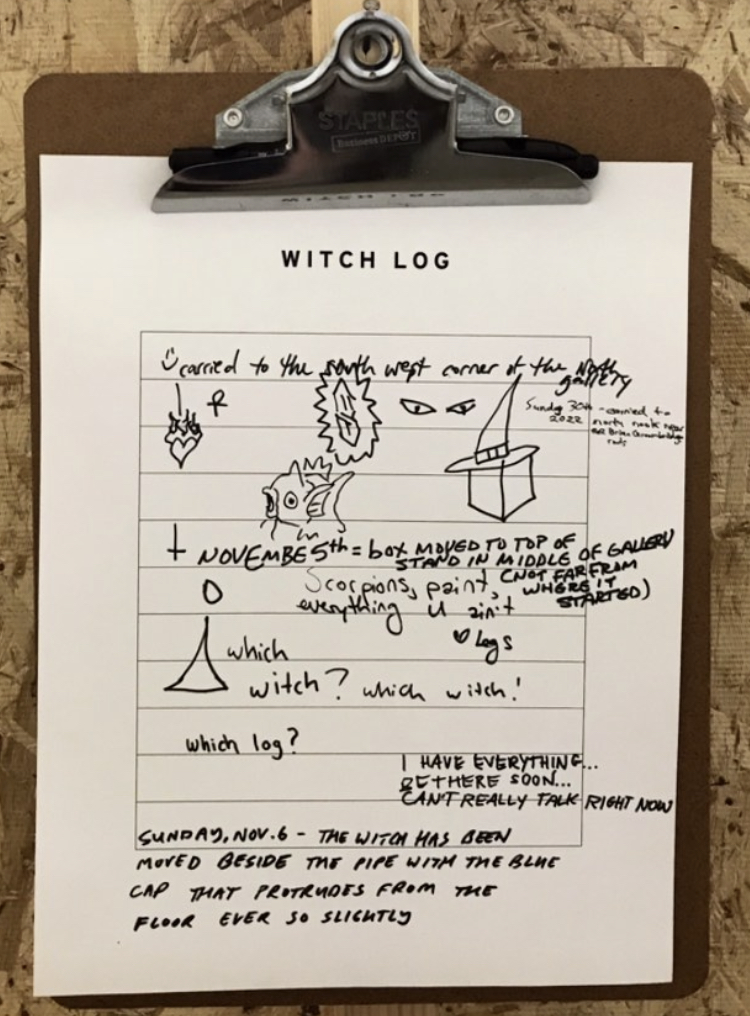 STAPLES
Business DEPOT
WITCH LOG
WITCH LOG
carried to the south west corner of the North
gallery
Sunday 30th - carried to
2022 north nook near
Brian
NOVEMBE 5th = box MOVED TO TOP OF
STAND IN MIDDLE OF GALLERY
(NOT FAR FROM
WHERE IT
STARTED)
Scorpions, paint,
everything u ain't
Logs
which
witch? which witch!
which log?
I HAVE EVERYTHING...
BE THERE SOON...
CAN'T REALLY TALK RIGHT NOW
SUNDAY, NOV. 6 - THE WITCH HAS BEEN
MOVED BESIDE THE PIPE WITH THE BLUE
CAP THAT PROTRUDES FROM THE
FLOOR EVER SO SLIGHTLY